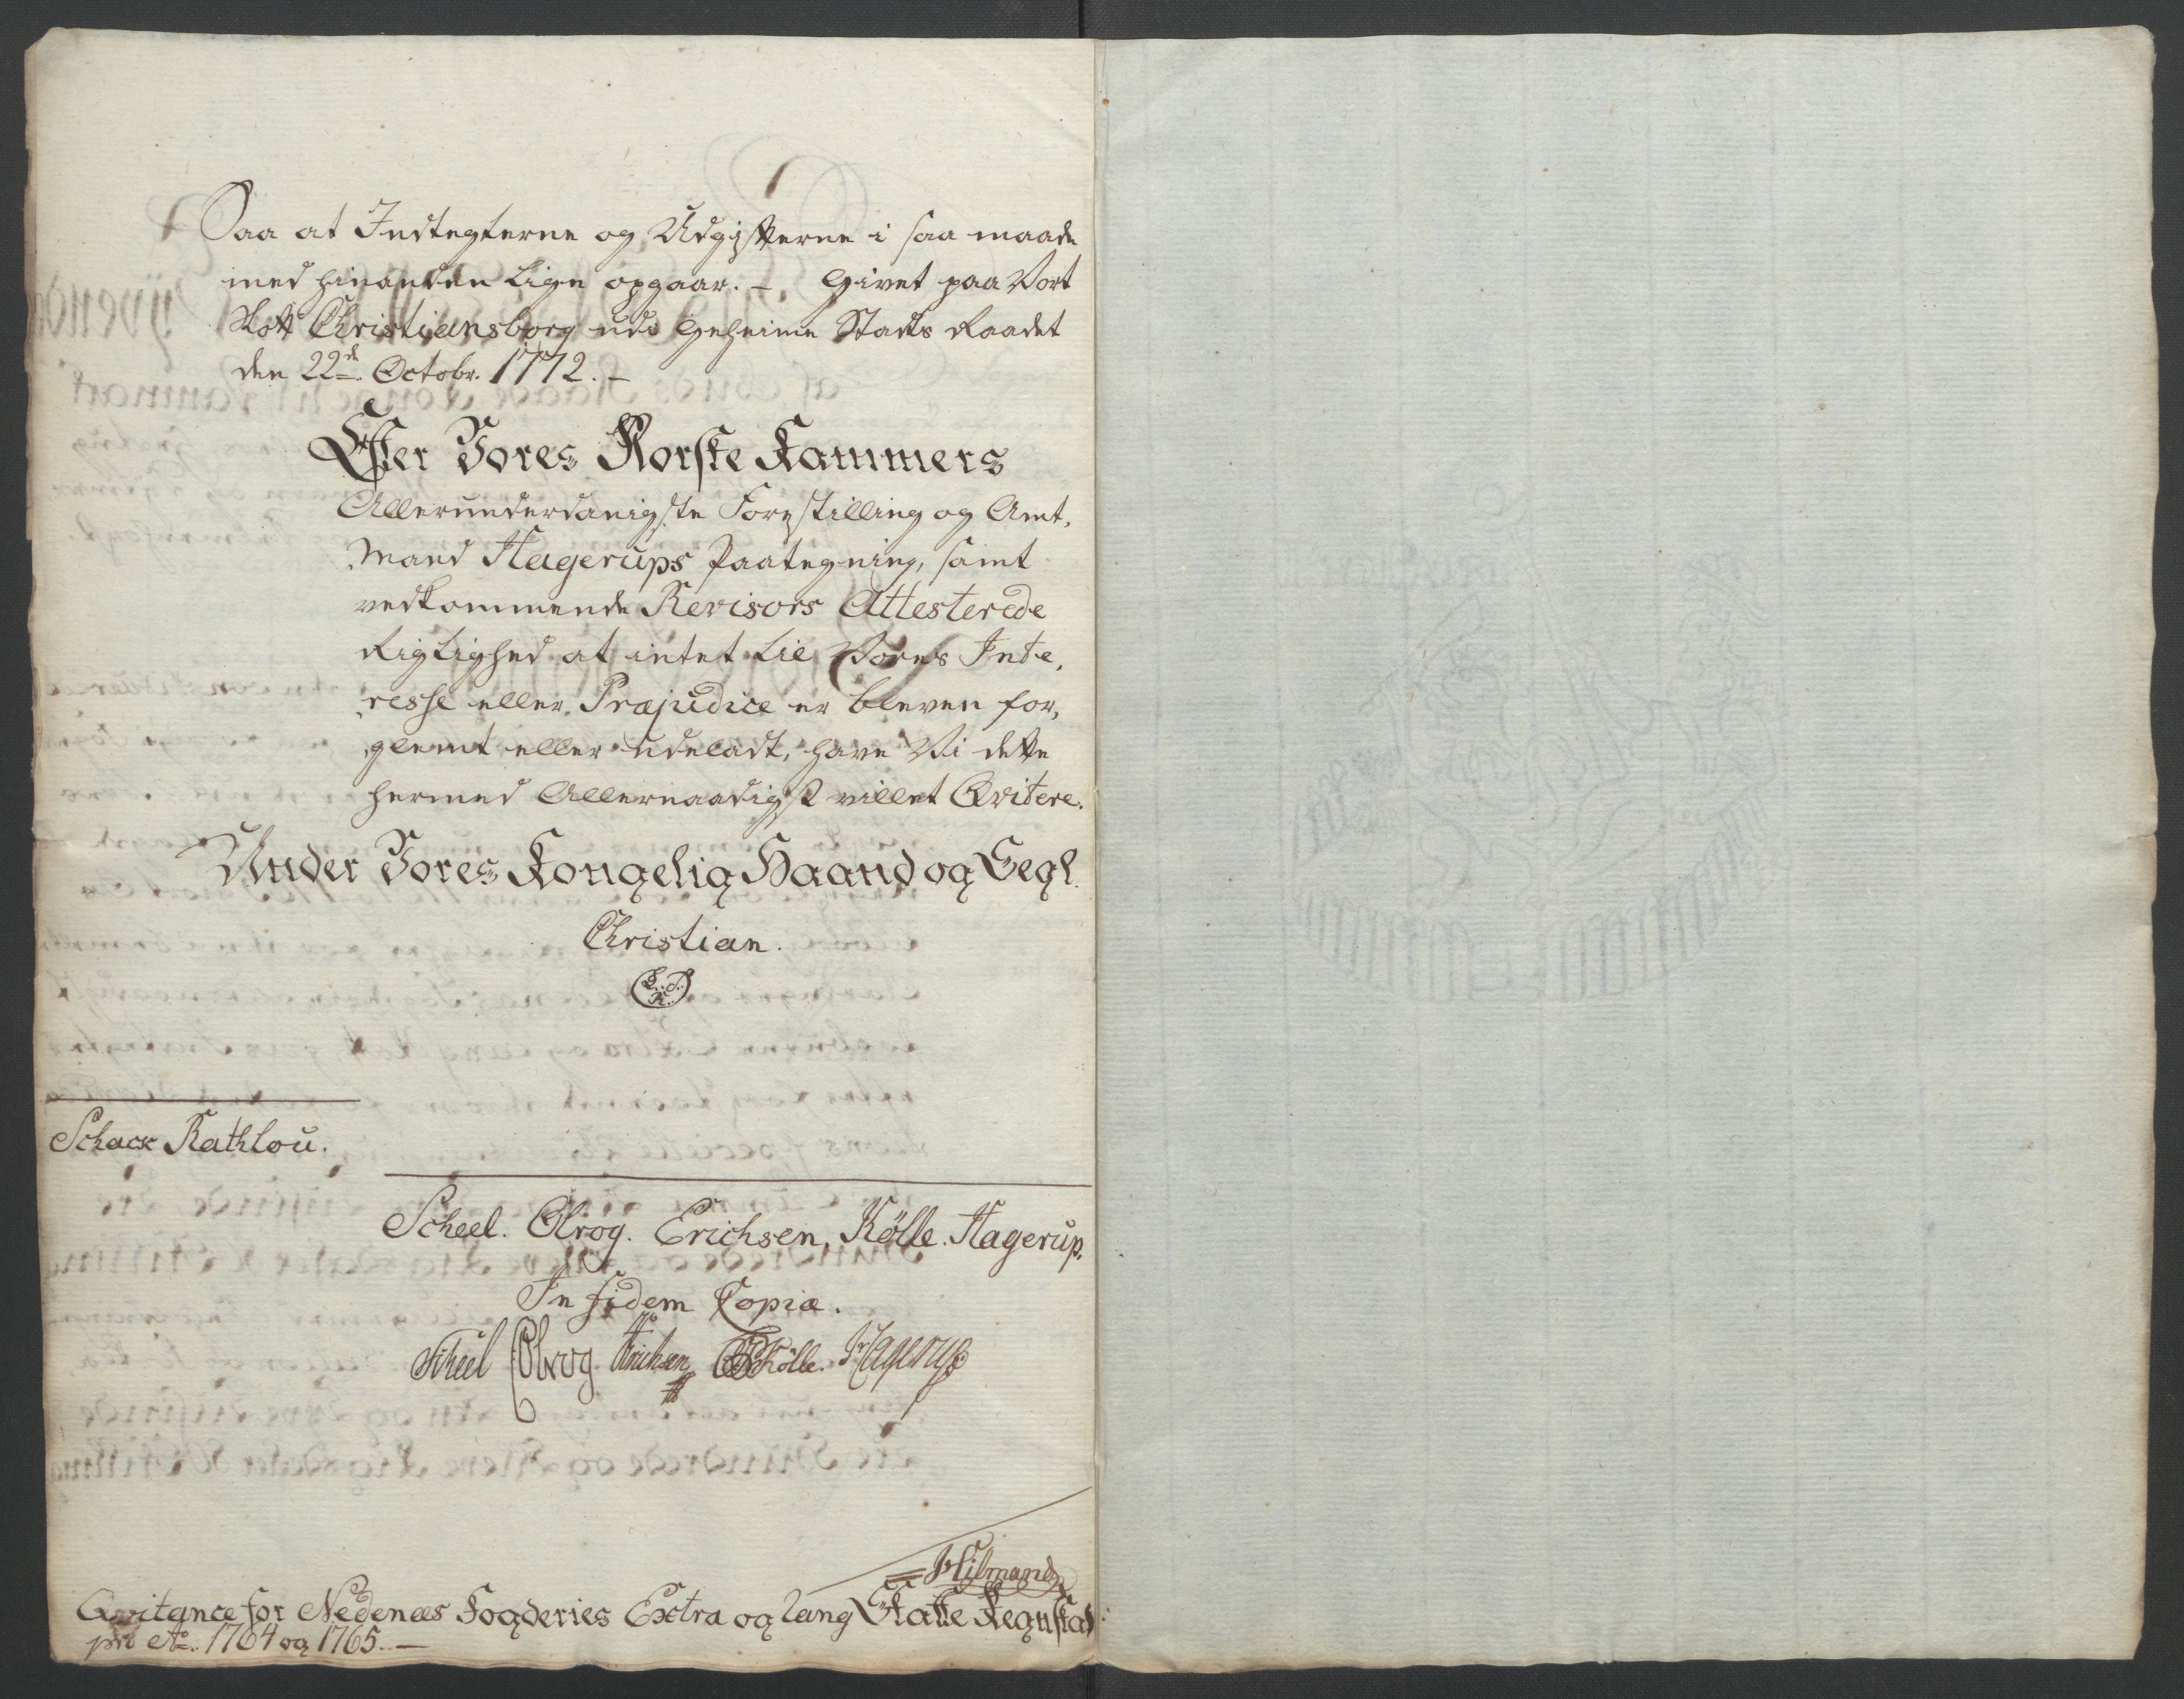 Saa at Indtegterne og Udgifterne i saa maade
med hinanden lige opgaar. – Givet paa Vort
Slott Christiansborg udi Geheime Stads Raadet
den 22de. Octobr. 1772. –
Efter Vores Norske Kammers
Allerunderdanigste Forestilling og Amt,
mand Hagerups Paategning, samt
vedkommende Revisors Attesterede
Rigtighed at intet til Vores Inte,
resse eller Præjudice er bleven for,
glemt eller udeladt, have Vi dette
hermed Allernaadigst villet Qvitere.
Under Vores Kongelig Haand og Segl.
Christian.
L. S.
R.
Schack Rathlou.
Scheel. Olrog. Erichsen. Kölle. Hagerup.
In fidem Copiæ.
Scheel Olrog Erichsen Kölle. Hagerup
Hilmand
Qvitance for Nedenæs Fogderies Extra og lang Skatte Regnskab
pro Ao. 1764 og 1765. –